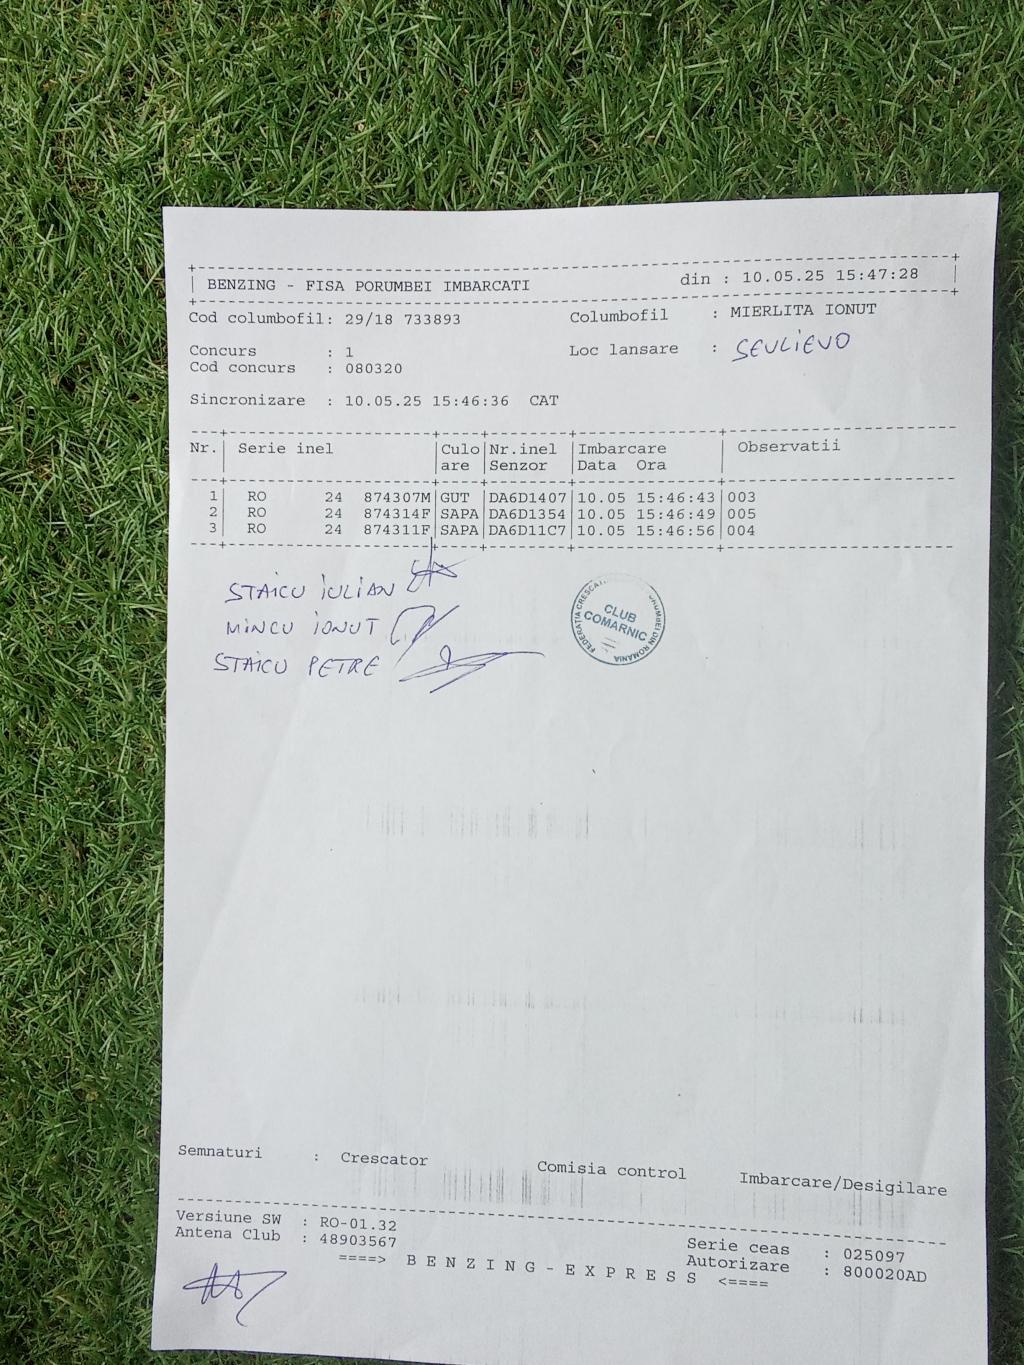 BENZING - FISA PORUMBEI IMBARCATI din : 10.05.25 15:47:28
Cod columbofil: 29/18 733893 Columbofil : MIERLITA IONUT
Concurs : 1 Loc lansare : SEVLIEVO
Cod concurs : 080320
Sincronizare : 10.05.25 15:46:36 CAT
Nr. Serie inel Culo Nr.inel Imbarcare Observatii
are Senzor Data Ora
1 RO 24 874307M GUT DA6D1407 10.05 15:46:43 003
2 RO 24 874314F SAPA DA6D1354 10.05 15:46:49 005
3 RO 24 874311F SAPA DA6D11C7 10.05 15:46:56 004
STAICU IULIAN
MINCU IONUT
STAICU PETRE
CLUB
COMARNIC
FEDERATIA DIN ROMANIA
Semnaturi : Crescator Comisia control Imbarcare/Desigilare
Versiune SW : RO-01.32 Serie ceas : 025097
Antena Club : 48903567 Autorizare : 800020AD
====> B E N Z I N G - E X P R E S S <====